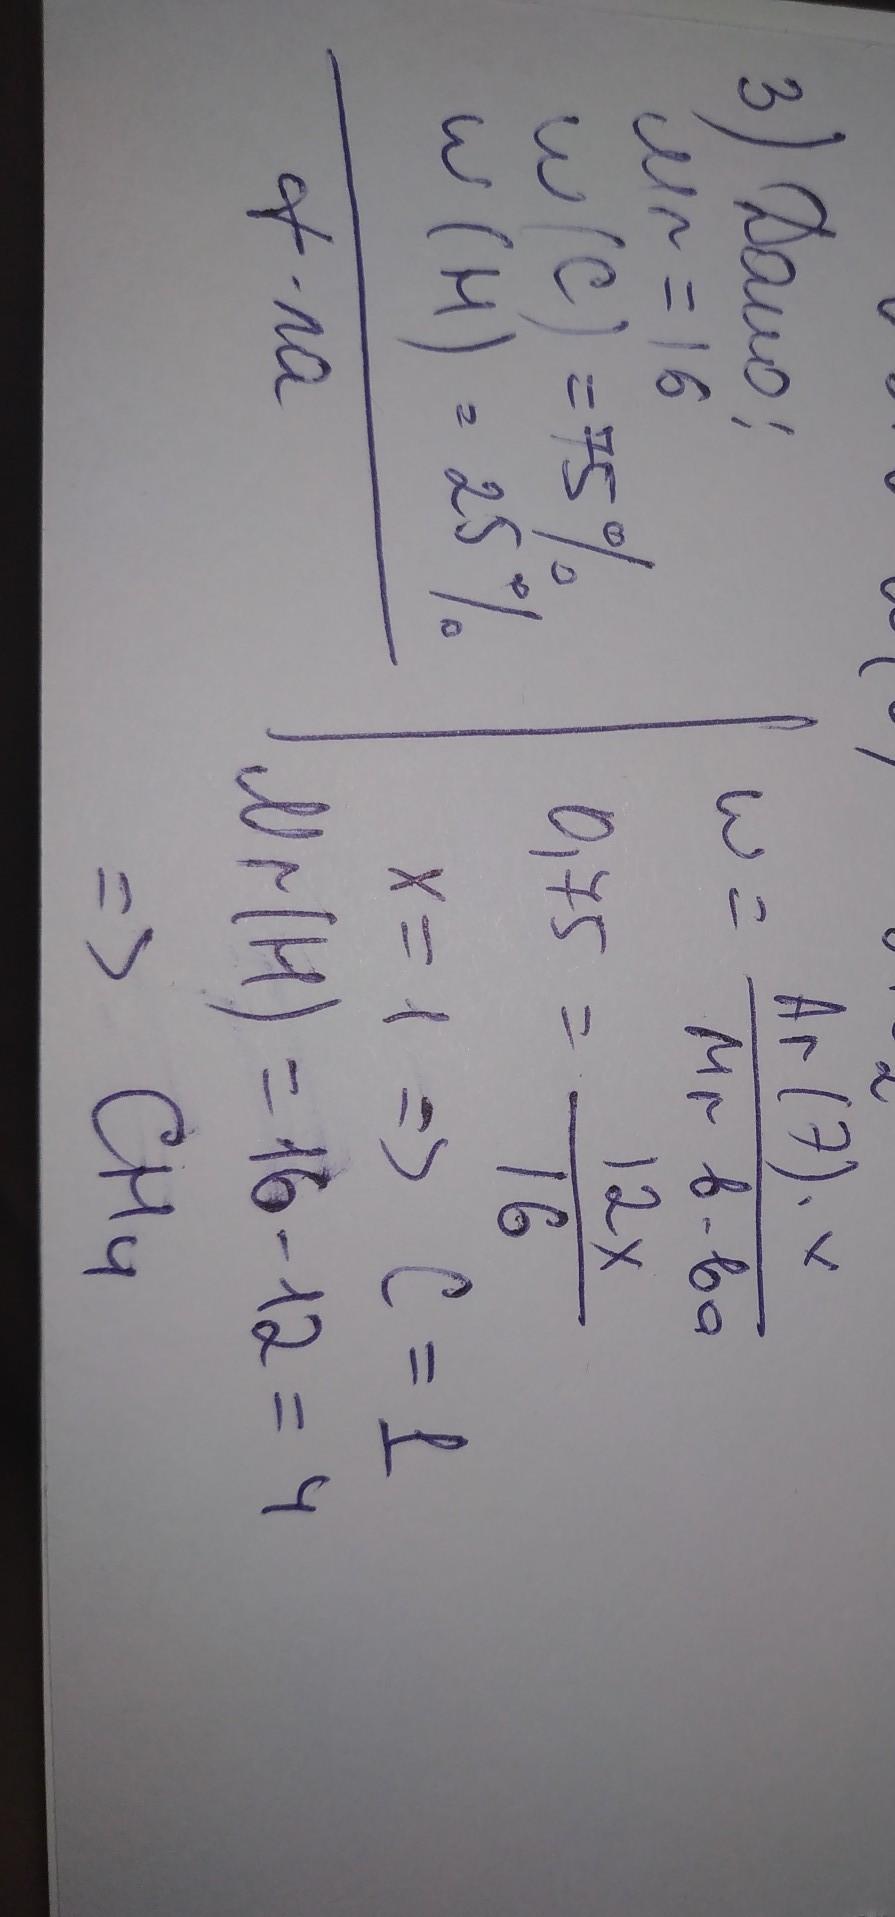 3) Дано:
Mr = 16
w (C) = 75%
w (H) = 25%
ф-ла
w = Ar (Э) · x / Mr в-ва
0,75 = 12x / 16
x = 1 => C = 1
Mr(H) = 16 - 12 = 4
=> CH4